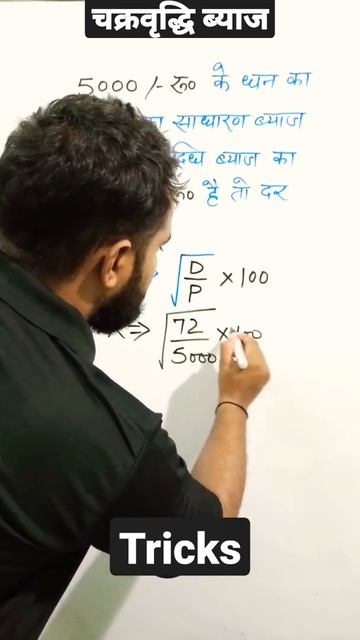 चक्रवृद्धि ब्याज
5000 /- रु० के धन का
साधारण ब्याज
ब्याज का
है तो दर
√D/P × 100
⇒ √72/5000 × 100
Tricks